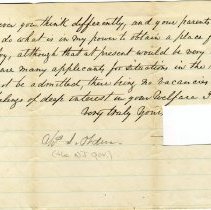 ever you think differently, and your parents
do what is in my power to obtain a place f
y, although that at present would be very
are many applicants for situations in the
st be admitted, there being no vacancies
elings of deep interest in your Welfare I
Very truly Your